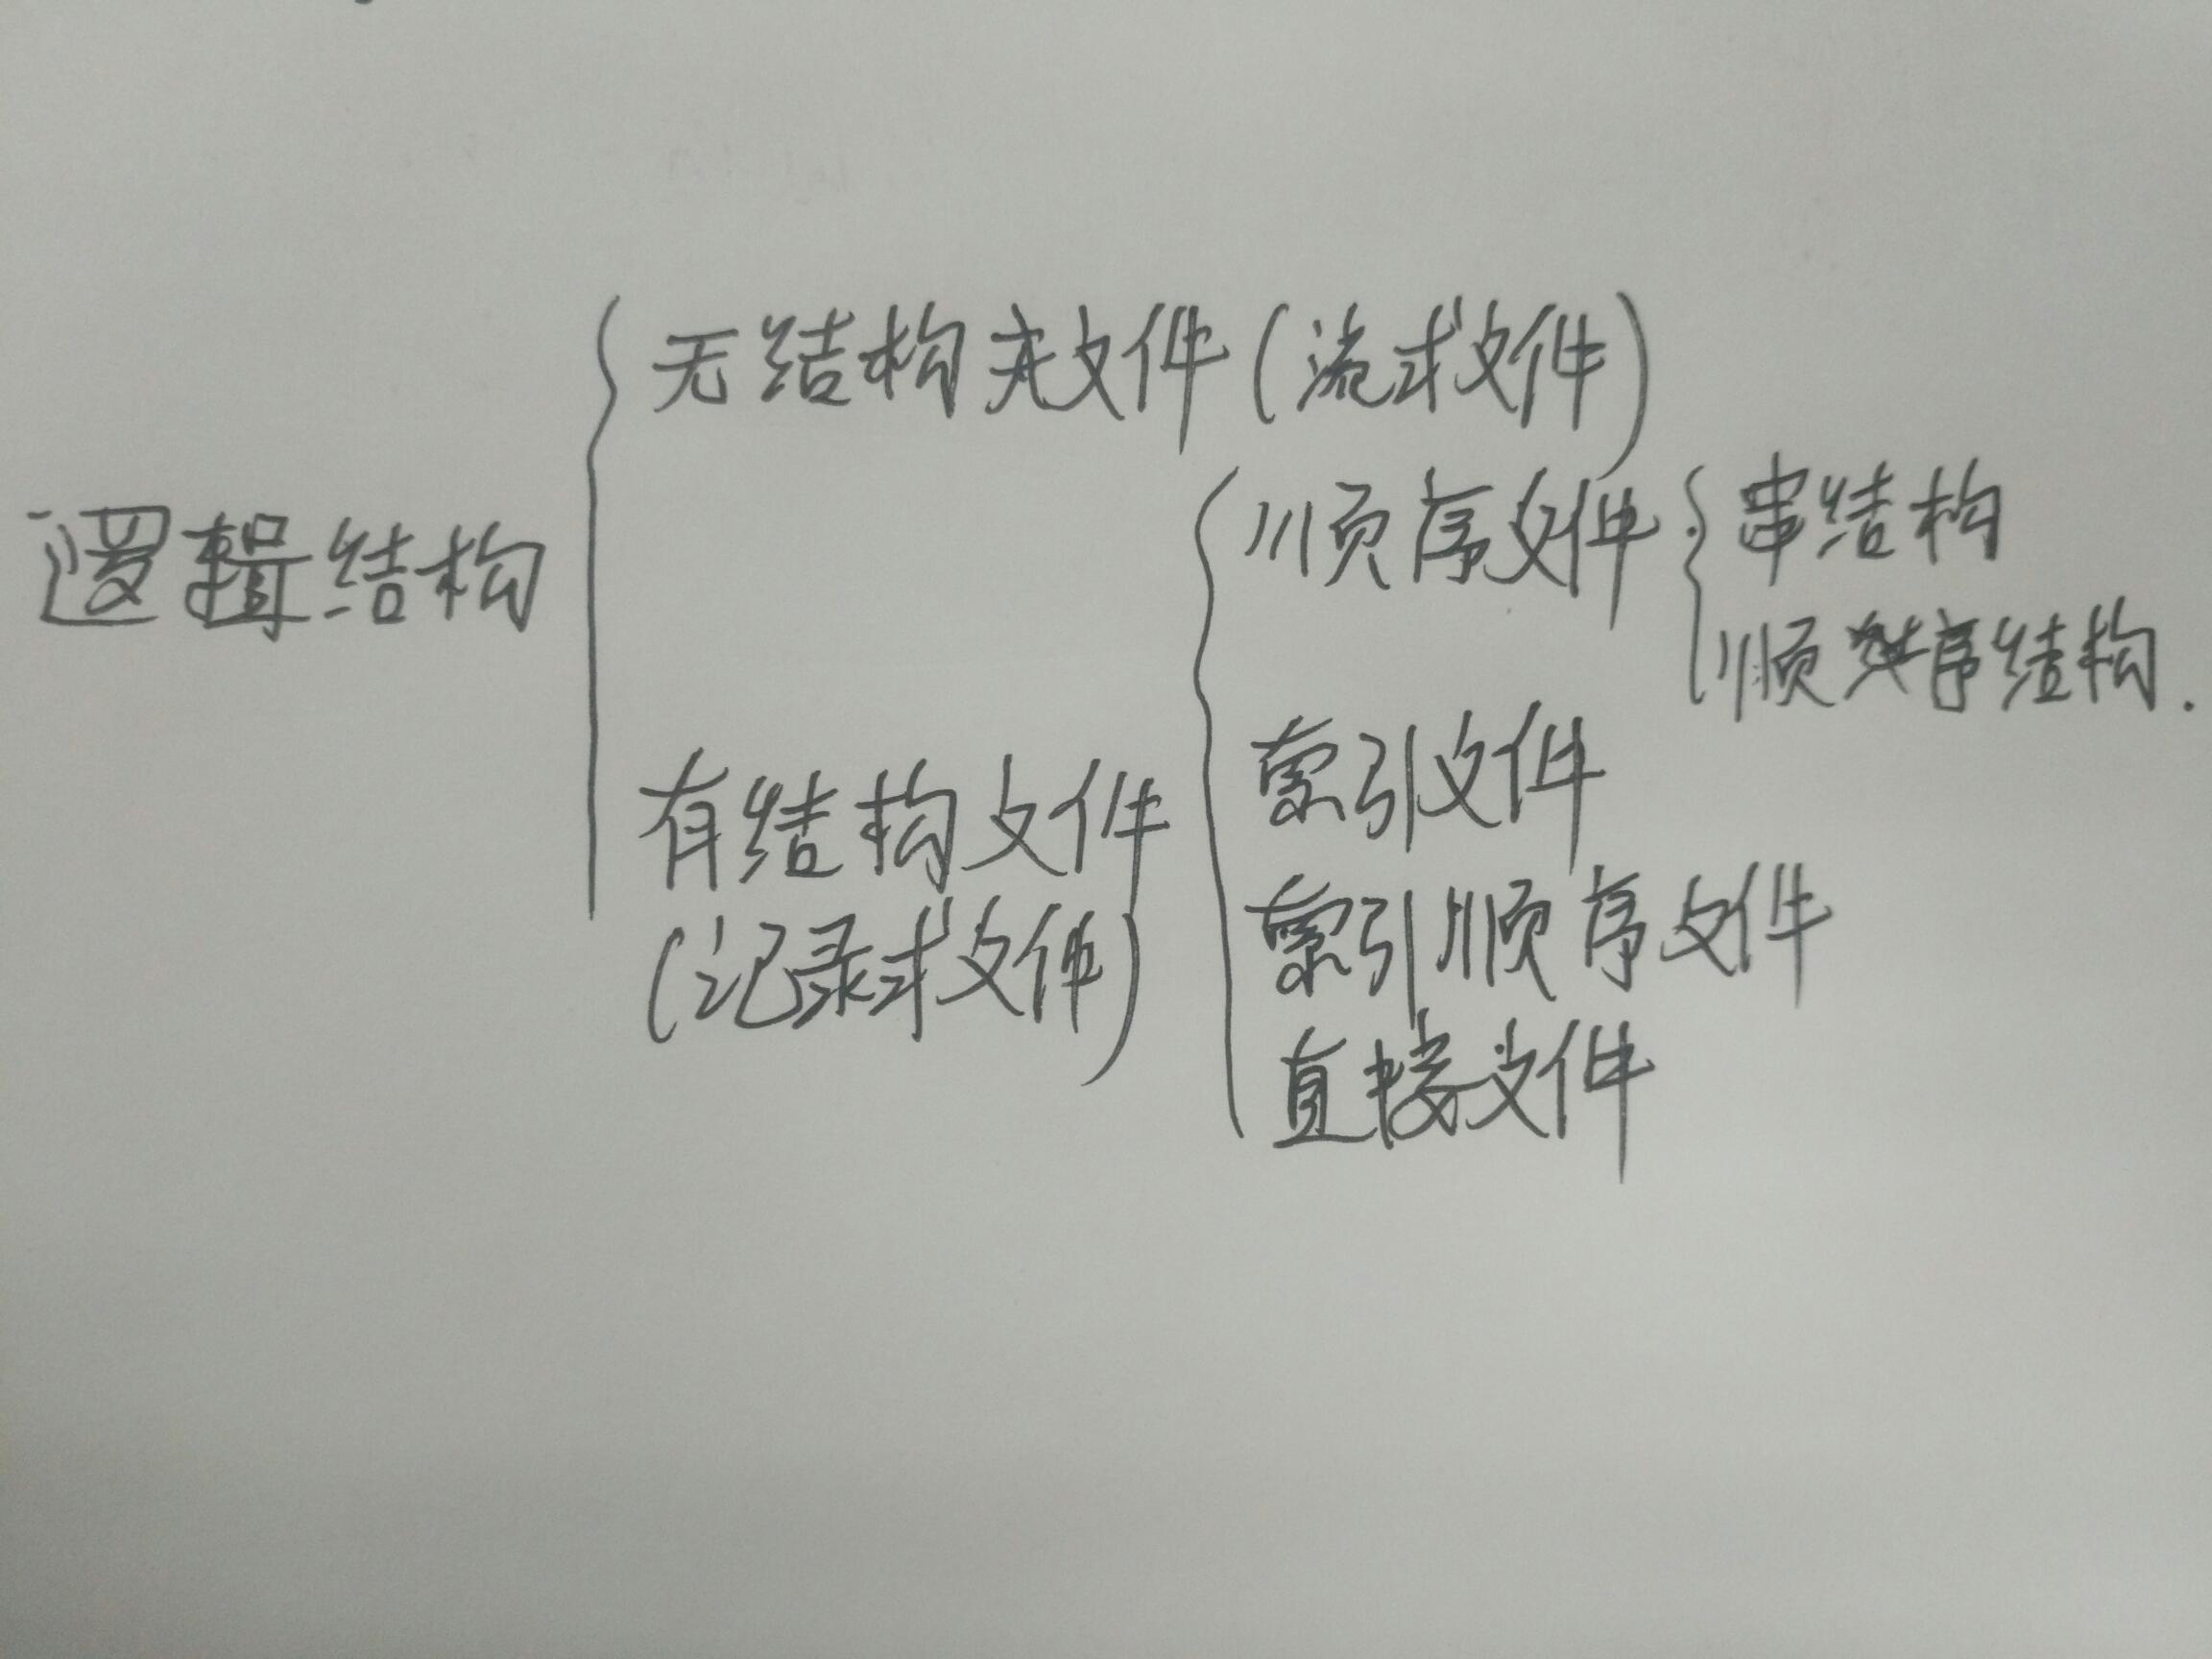 无结构文件(流式文件)
逻辑结构
顺序文件
串结构
顺序结构.
有结构文件
(记录式文件)
索引文件
索引顺序文件
直接文件